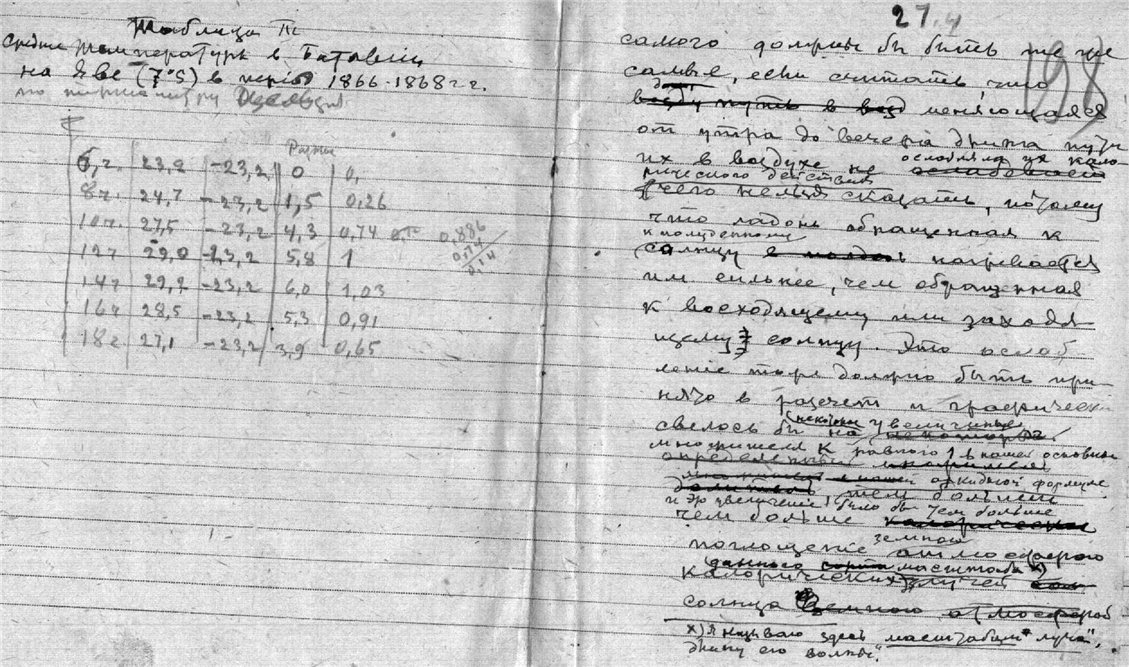 Таблица IIс
Средняя температура в Батавии
на Яве (7°S) в период 1866-1868 гг.
по термометру Цельсия
Разн
6 г. 23,2 -23,2 0 0,
8 г. 24,7 -23,2 1,5 0,26
10 г. 27,5 -23,2 4,3 0,74 0,886
0,74
0,14
12 г 29,0 -23,2 5,8 1
14 г 29,2 -23,2 6,0 1,03
16 г 28,5 -23,2 5,3 0,91
18 г 27,1 -23,2 3,9 0,65
27.4
198
самого должны бы быть те же
самые, если считать, что
меняющаяся
от утра до вечера длина пути
их в воздухе не ослабляла их кало-
рического действия
чего нельзя сказать, потому
что ладонь обращенная к
к полуденному
солнцу нагревается
им сильнее, чем обращенная
к восходящему или заходя
щему солнцу. Это ослаб
ление тоже должно быть при-
нято в расчет и графически
свелось бы на некоторое увеличение
множителя К равного 1 в нашей основной
определенный
в нашей формуле
тем больший
и это увеличение было бы тем больше
чем больше
поглощение земной атмосферою
данного масштаба х)
калорических лучей
солнца земною атмосферой
х) Я называю здесь "масштабом луча"
длину его волны".